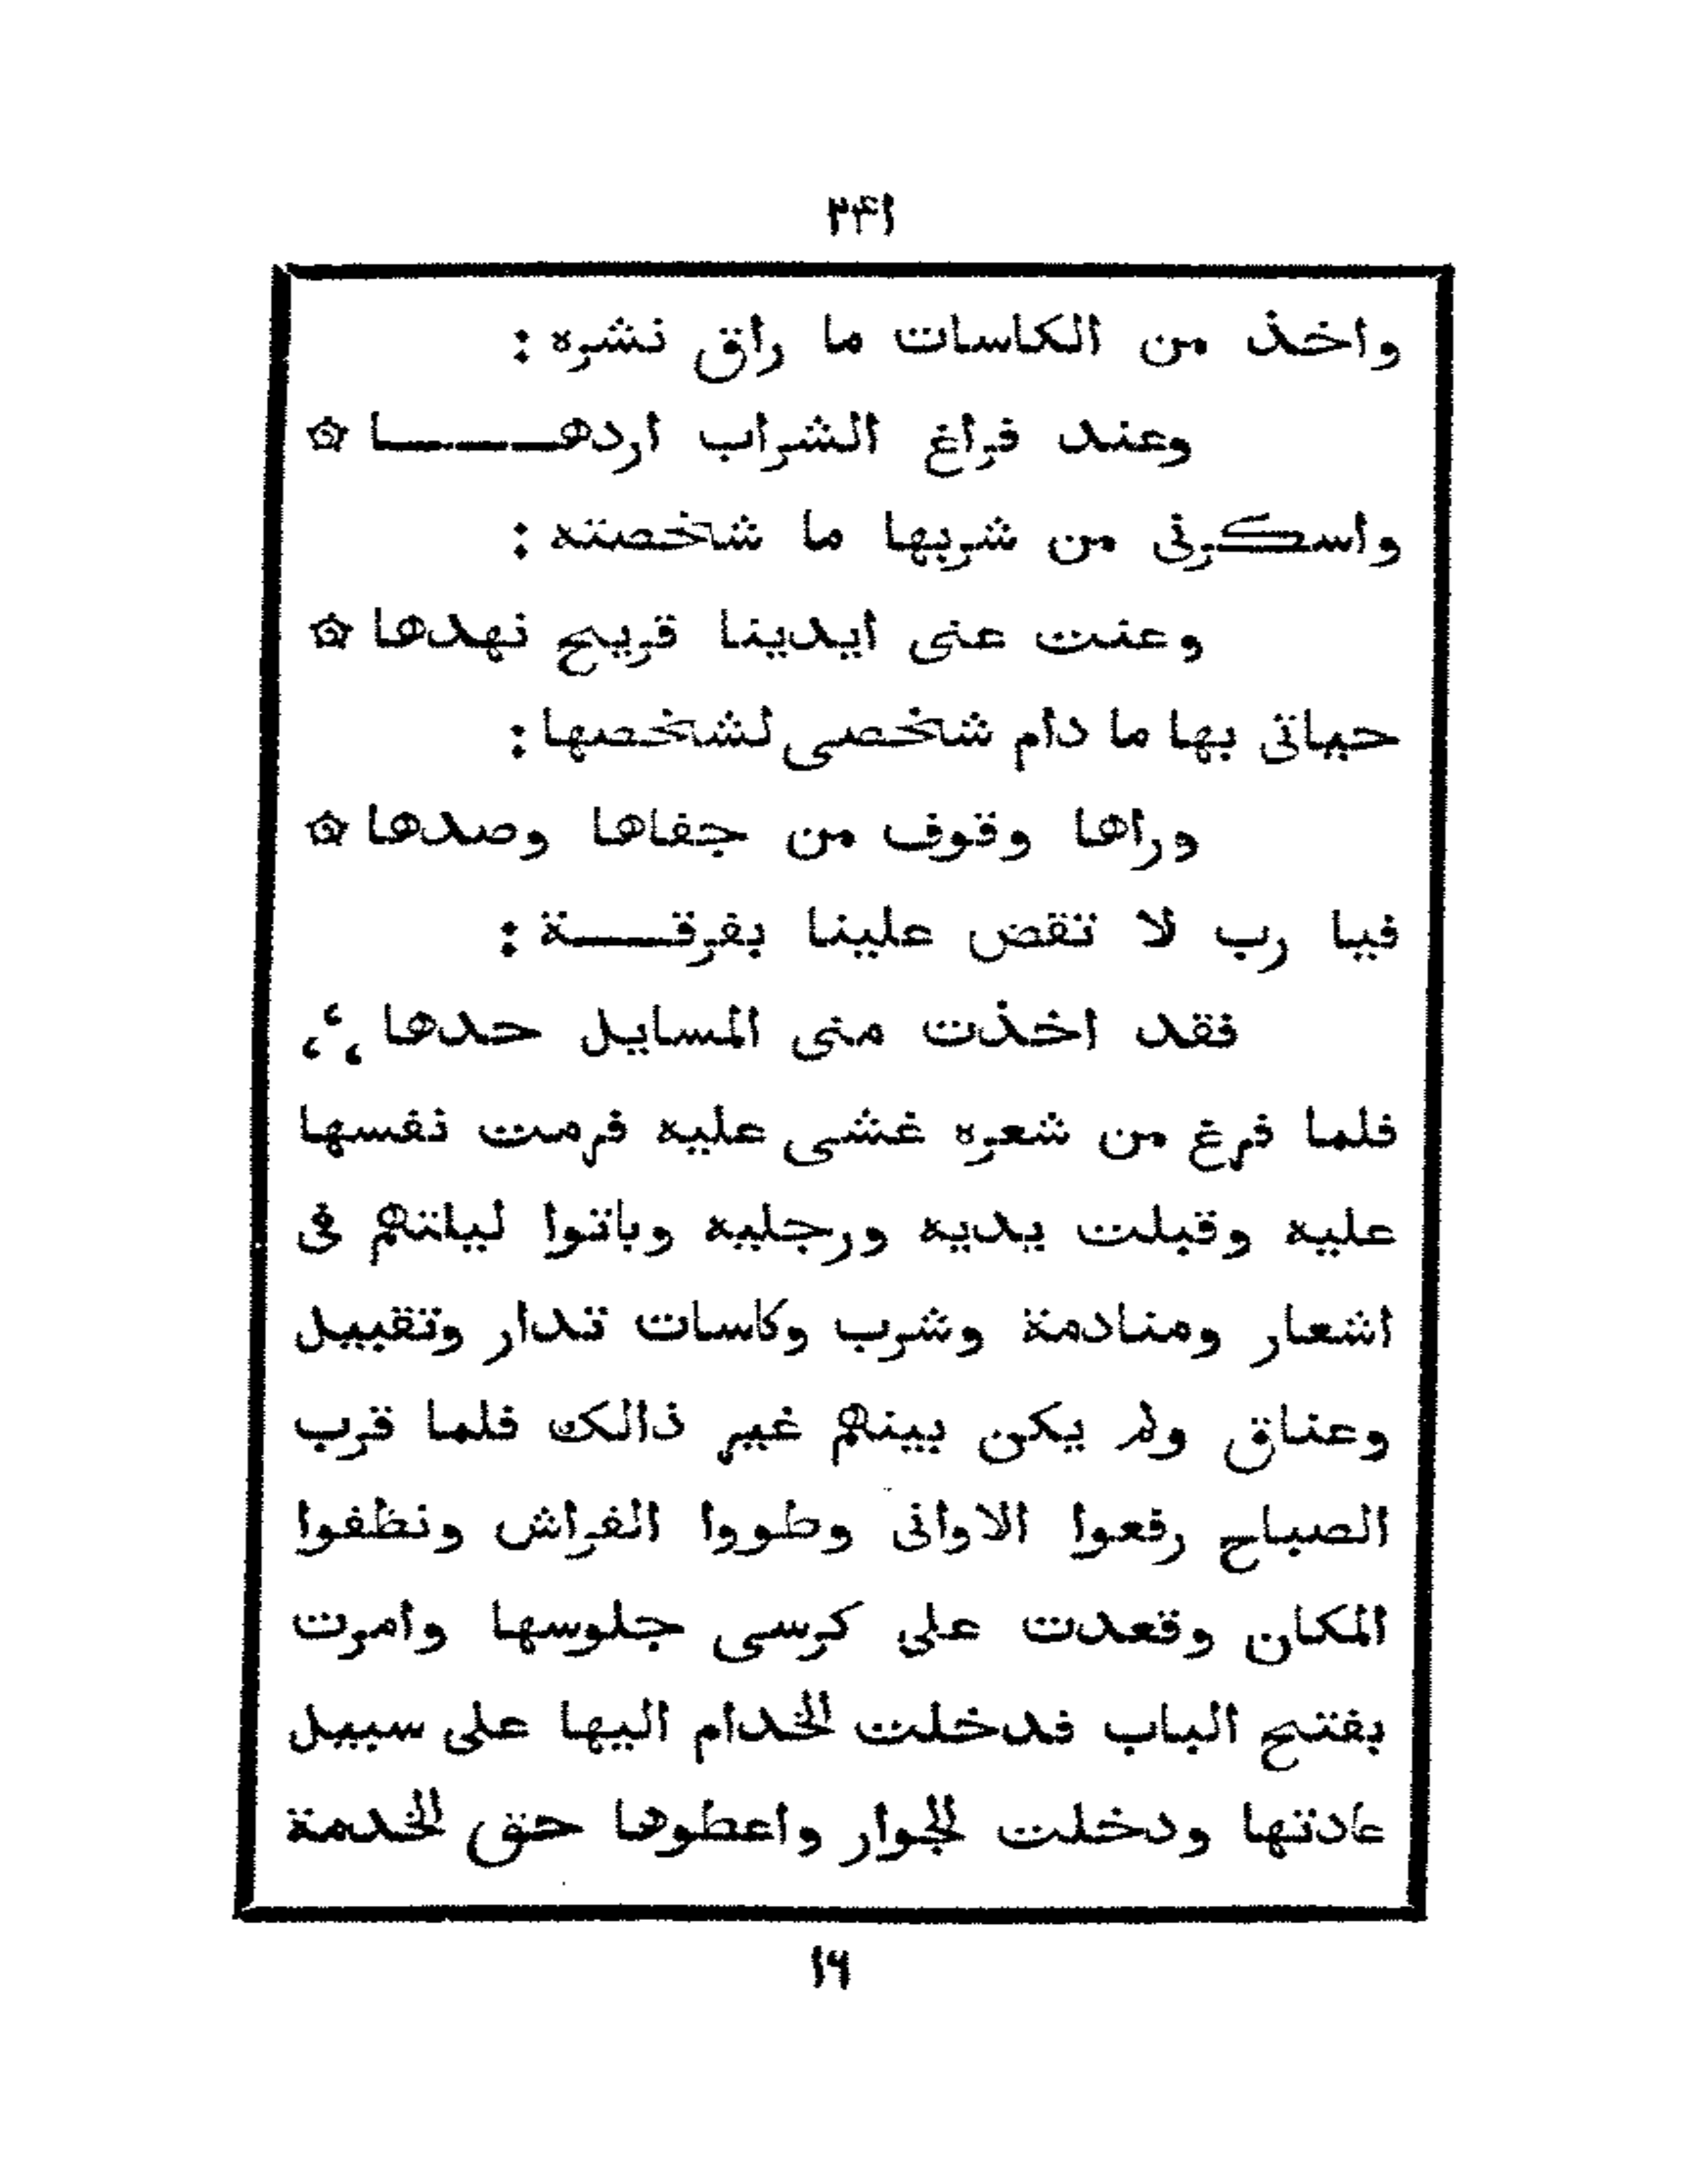 ٢٤١
واخذ من الكاسات ما راق نشره :
وعند فراغ الشراب اردهـــا ۞
واسكرنى من شربها ما شخصته :
وعنت عنى ايدينا قريح نهدها ۞
حياتى بها ما دام شخصى لشخصها :
وراها وقوف من جفاها وصدها ۞
فيا رب لا تقض علينا بفرقـــة :
فقد اخذت منى المسايل حدها ؛
فلما فرغ من شعره غشى عليه فرمت نفسها
عليه وقبلت يديه ورجليه وباتوا ليلتهم فى
اشعار ومنادمة وشرب وكاسات تدار وتقبيل
وعناق ولم يكن بينهم غير ذالك فلما قرب
الصباح رفعوا الاوانى وطووا الفراش ونظفوا
المكان وقعدت على كرسى جلوسها وامرت
بفتح الباب فدخلت الخدام اليها على سبيل
عادتها ودخلت الجوار واعطوها حق الخدمة
١٦